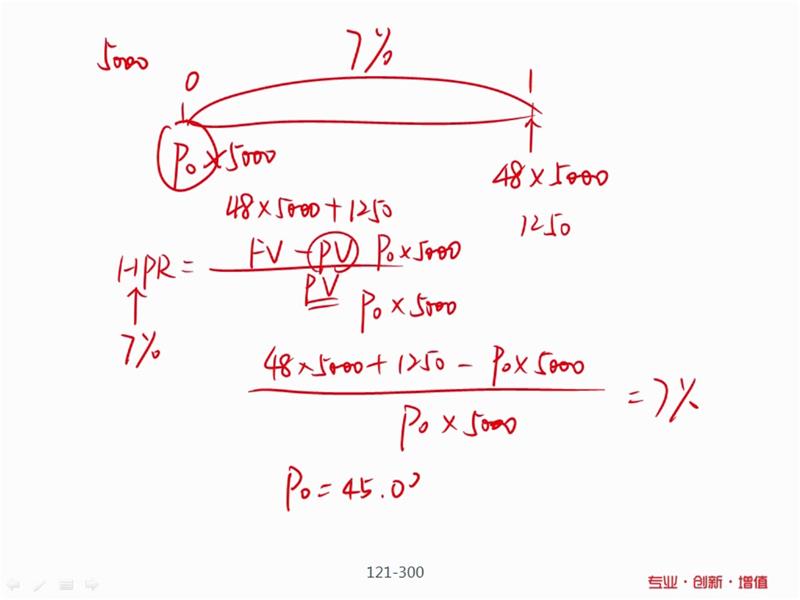 5000
7%
0
1
P₀×5000
48×5000
1250
48×5000+1250
HPR = FV - PV P₀×5000
PV P₀×5000
7%
48×5000+1250 - P₀×5000
= 7%
P₀×5000
P₀ = 45.09
121-300
专业·创新·增值